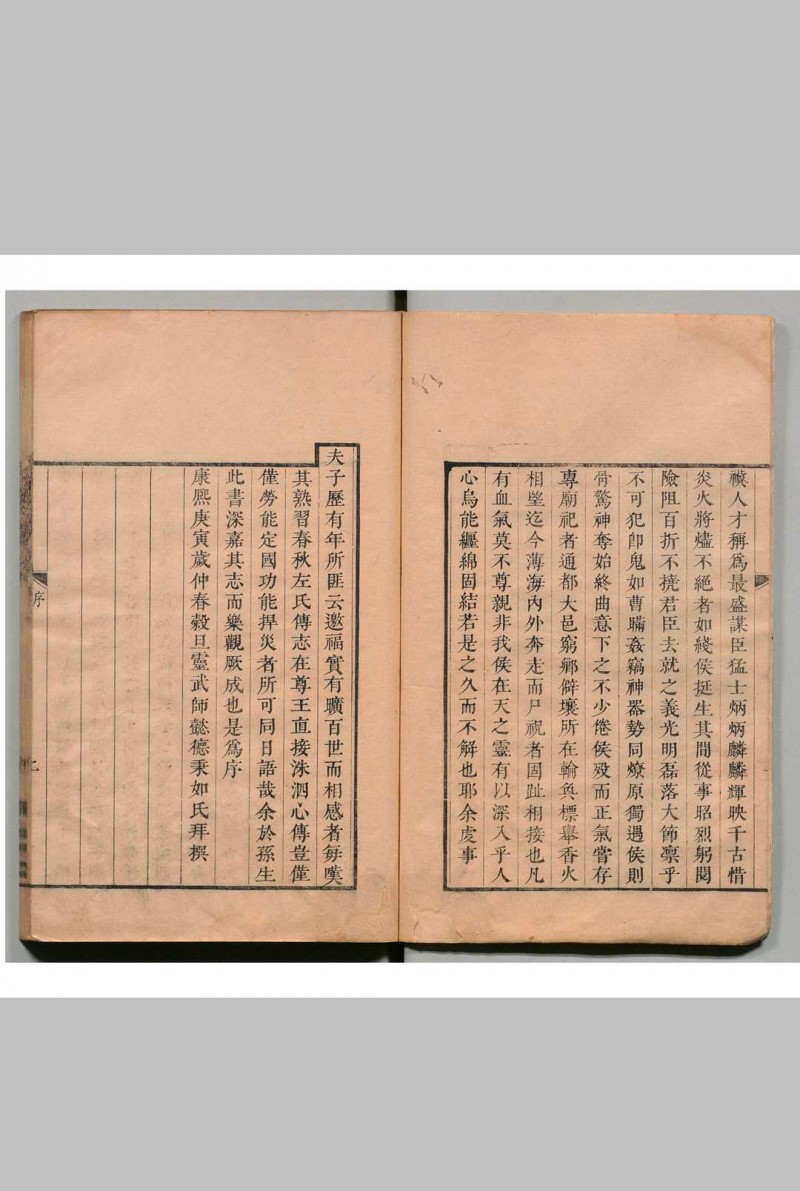 禩人才稱爲最盛謀臣猛士炳炳麟麟輝映千古惜
炎火將燼不絕者如綫侯挺生其間從事昭烈躬閱
險阻百折不撓君臣去就之義光明磊落大節凛乎
不可犯卽鬼如曹瞞姦竊神器勢同燎原獨遇侯則
骨驚神奪始終曲意下之不少倦侯歿而正氣嘗存
專廟祀者通都大邑窮鄉僻壤所在輪奐標舉香火
相望迄今薄海內外奔走而尸祝者固趾相接也凡
有血氣莫不尊親非我侯在天之靈有以深入乎人
心烏能纒綿固結若是之久而不解也耶余虔事
夫子歷有年所匪云邀福實有曠百世而相感者每嘆
其熟習春秋左氏傳志在尊王直接洙泗心傳豈僅
僅勞能定國功能捍災者所可同日語哉余於孫生
此書深嘉其志而樂觀厥成也是爲序
康熙庚寅歲仲春穀旦靈武師懿德秉如氏拜撰
序
七